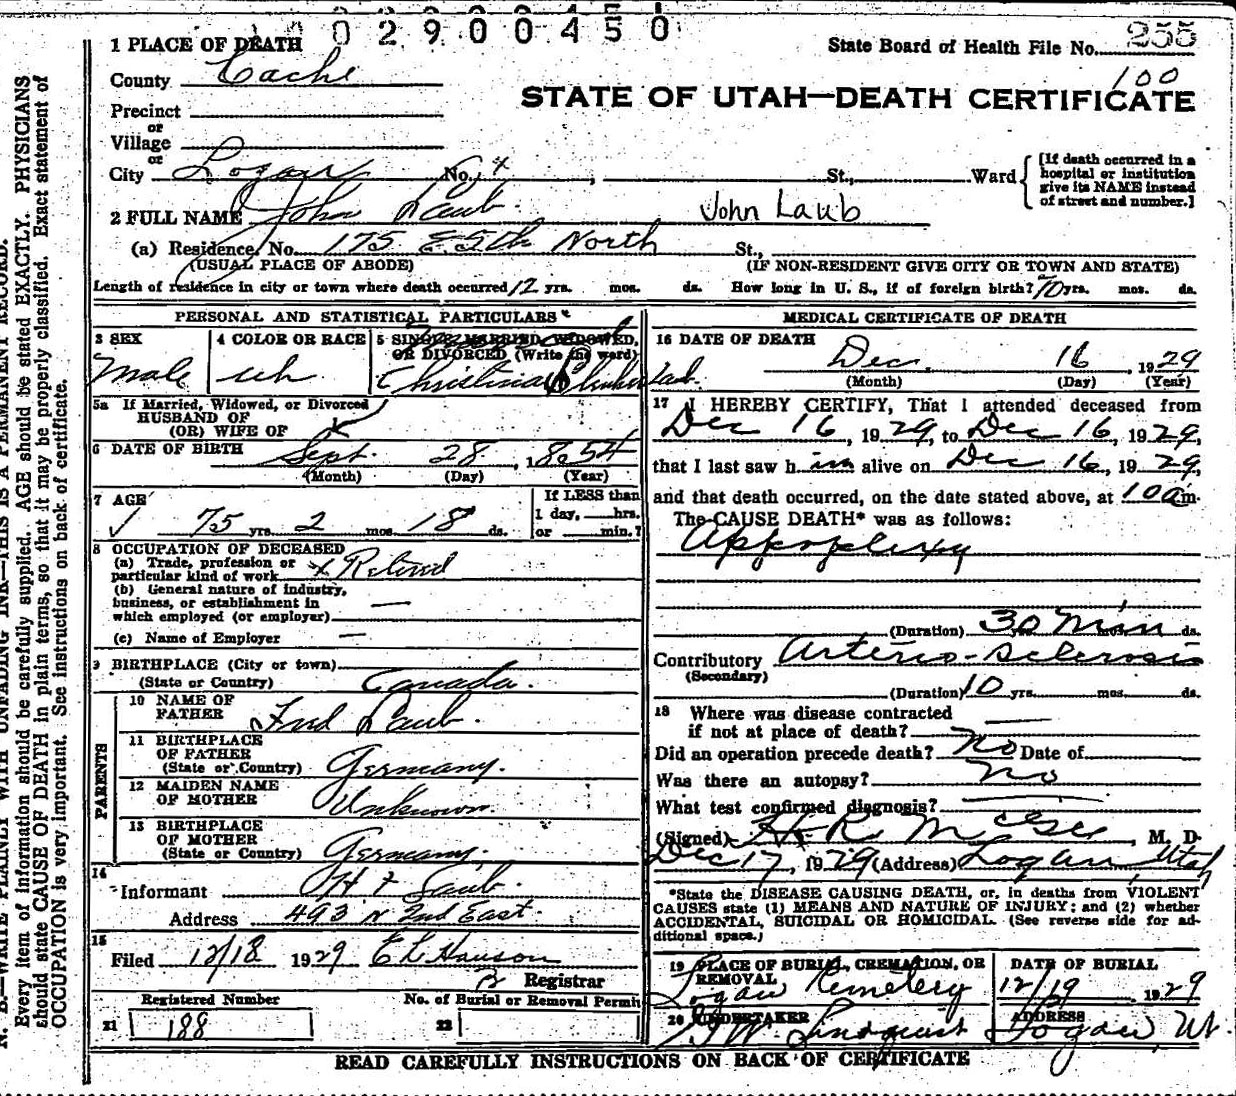 0 0 2 9 0 0 4 5 0
1 PLACE OF DEATH
State Board of Health File No. 255
County Cache
100
STATE OF UTAH—DEATH CERTIFICATE
Precinct
or
Village
or
City Logan No. x St., Ward
[If death occurred in a hospital or institution give its NAME instead of street and number.]
2 FULL NAME John Laub John Laub
(a) Residence, No. 175 E 5th North St.,
(USUAL PLACE OF ABODE) (IF NON-RESIDENT GIVE CITY OR TOWN AND STATE)
Length of residence in city or town where death occurred 12 yrs. mos. ds. How long in U. S., if of foreign birth? 70 yrs. mos. ds.
PERSONAL AND STATISTICAL PARTICULARS
3 SEX Male
4 COLOR OR RACE wh
5 SINGLE, MARRIED, WIDOWED, OR DIVORCED (Write the word)
Christina Laub
5a If Married, Widowed, or Divorced
HUSBAND OF
(OR) WIFE OF
6 DATE OF BIRTH Sept. 28, 1854
(Month) (Day) (Year)
7 AGE 75 yrs. 2 mos. 18 ds.
If LESS than
1 day, hrs.
or min.?
8 OCCUPATION OF DECEASED
(a) Trade, profession or
particular kind of work x Retired
(b) General nature of industry,
business, or establishment in
which employed (or employer) —
(c) Name of Employer —
9 BIRTHPLACE (City or town)
(State or Country) Canada.
PARENTS
10 NAME OF
FATHER Fred Laub.
11 BIRTHPLACE
OF FATHER
(State or Country) Germany.
12 MAIDEN NAME
OF MOTHER Unknown
13 BIRTHPLACE
OF MOTHER
(State or Country) Germany.
14
Informant Laub.
Address 493 N 2nd East.
15
Filed 12/18 1929 E L Hanson
Registrar
Registered Number No. of Burial or Removal Permit
21 188 22
MEDICAL CERTIFICATE OF DEATH
16 DATE OF DEATH
Dec. 16, 1929
(Month) (Day) (Year)
17 I HEREBY CERTIFY, That I attended deceased from
Dec 16, 1929, to Dec 16, 1929,
that I last saw h im alive on Dec 16, 1929,
and that death occurred, on the date stated above, at 10 am.
The CAUSE DEATH* was as follows:
Appoplexy
(Duration) 30 Min mos. ds.
Contributory Arterio-Sclerosis
(Secondary)
(Duration) 10 yrs. mos. ds.
18 Where was disease contracted
if not at place of death? —
Did an operation precede death? No Date of
Was there an autopay? No
What test confirmed diagnosis? —
(Signed) H R McGee, M. D.
Dec 17, 1929 (Address) Logan, Utah
*State the DISEASE CAUSING DEATH, or, in deaths from VIOLENT
CAUSES state (1) MEANS AND NATURE OF INJURY; and (2) whether
ACCIDENTAL, SUICIDAL OR HOMICIDAL. (See reverse side for ad-
ditional space.)
19 PLACE OF BURIAL, CREMATION, OR
REMOVAL
Logan Cemetery
DATE OF BURIAL
12/19 1929
20 UNDERTAKER
Lindquist
ADDRESS
Logan, Ut.
READ CAREFULLY INSTRUCTIONS ON BACK OF CERTIFICATE
N. B.—WRITE PLAINLY WITH UNFADING INK—THIS IS A PERMANENT RECORD.
Every item of information should be carefully supplied. AGE should be stated EXACTLY. PHYSICIANS
should state CAUSE OF DEATH in plain terms, so that it may be properly classified. Exact statement of
OCCUPATION is very important. See instructions on back of certificate.